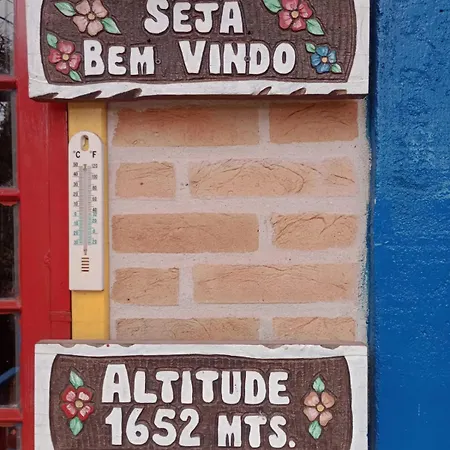 SEJA
BEM VINDO
°C °F
ALTITUDE
1652 MTS.